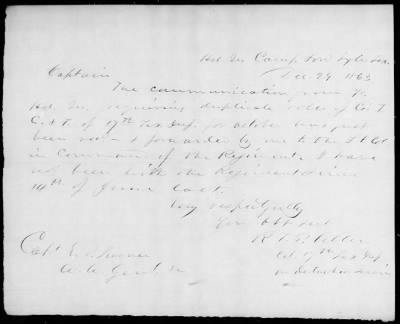 Hd. Qrs Camp, Tyler Tex.
Dec. 29 1863
Captain
The communication from Yr.
Hd. Qrs requiring duplicate rolls of Co. I
17th Tex Inf. for October was just
been forwarded by me to the Lt Col
in command of the Regiment. I have
not been with the Regiment since
14th of June last.
Very respectfully
Your Obt Svt
R. T. P. Allen
Col 17th Tex Inf
on Detached Service
Capt E.
A. A. Genl.